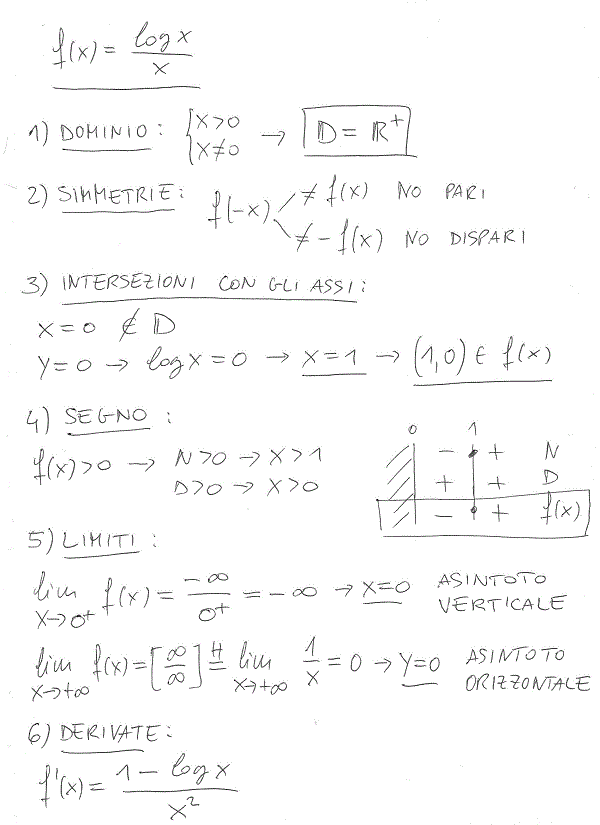 f(x) = log x / x
1) DOMINIO: { x>0 x≠0 → D = R⁺
2) SIMMETRIE: f(-x) ≠ f(x) NO PARI
≠ -f(x) NO DISPARI
3) INTERSEZIONI CON GLI ASSI:
x=0 ∉ D
y=0 → log x = 0 → x=1 → (1,0) ∈ f(x)
4) SEGNO:
f(x)>0 → N>0 → x>1
D>0 → x>0
0 1
- + N
+ + D
- + f(x)
5) LIMITI:
lim x→0⁺ f(x) = -∞ / 0⁺ = -∞ → x=0 ASINTOTO VERTICALE
lim x→+∞ f(x) = [∞/∞] H= lim x→+∞ 1/x = 0 → y=0 ASINTOTO ORIZZONTALE
6) DERIVATE:
f'(x) = 1 - log x / x²